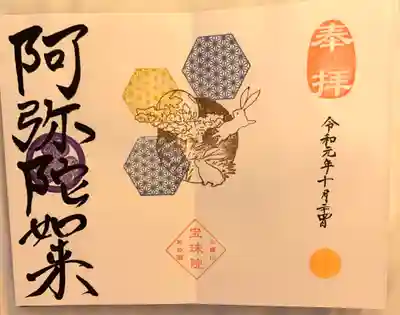 奉拝
令和元年十月
阿弥陀如来
宝珠院